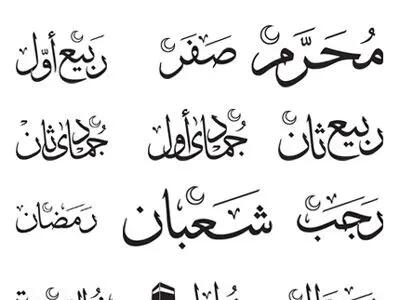 مُحَرَّم صَفَر رَبيع أوّل
ربيع ثان جُمادى أول جُمادى ثان
رَجَب شَعبان رَمَضان